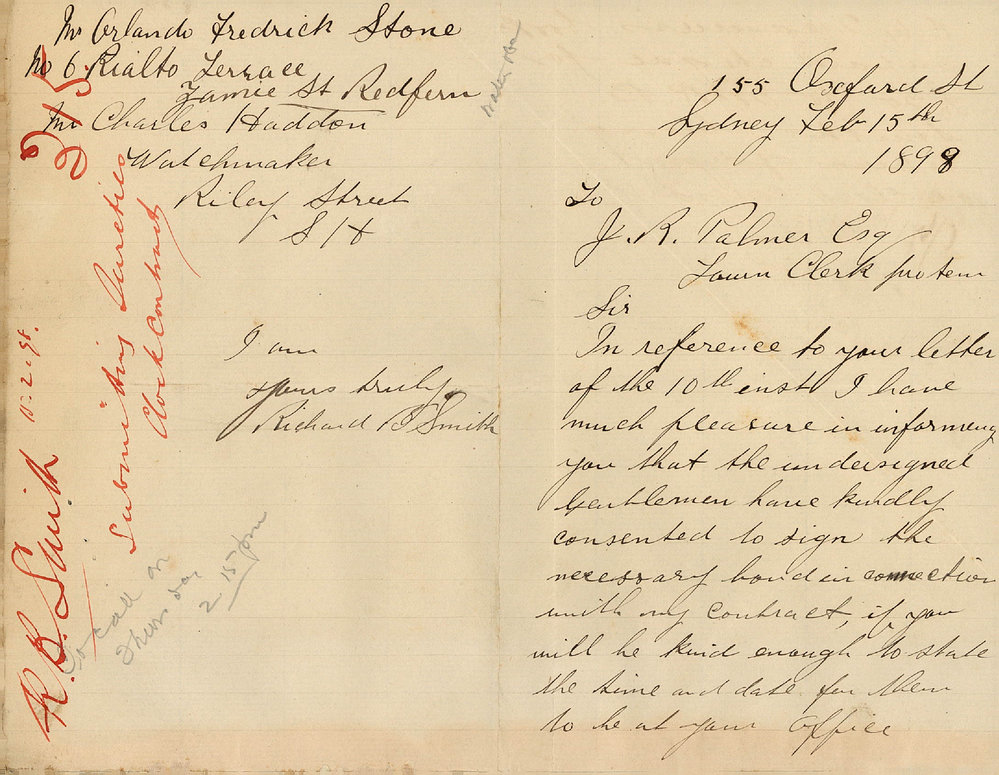 155 Oxford St
Sydney Feb 15th
1898
To
J. R. Palmer Esq
Town Clerk protem
Sir
In reference to your letter
of the 10th inst I have
much pleasure in informeng
you that the undersigned
Gentlemen have kindly
consented to sign the
necessary bond in connection
with my contract, if you
will be kind enough to state
the time and date for them
to be at your office
Mr Orlando Fredrick Stone
No 6 Rialto Terrace
Jamie St Redfern
Mr Charles Haddon
Watchmaker
Riley Street
S H
I am
yours truly
Richard B Smith
215
R. B. Smith 15.2.98.
Submitting Sureties
Clock Contract
To call on
Thursday
2 15 pm